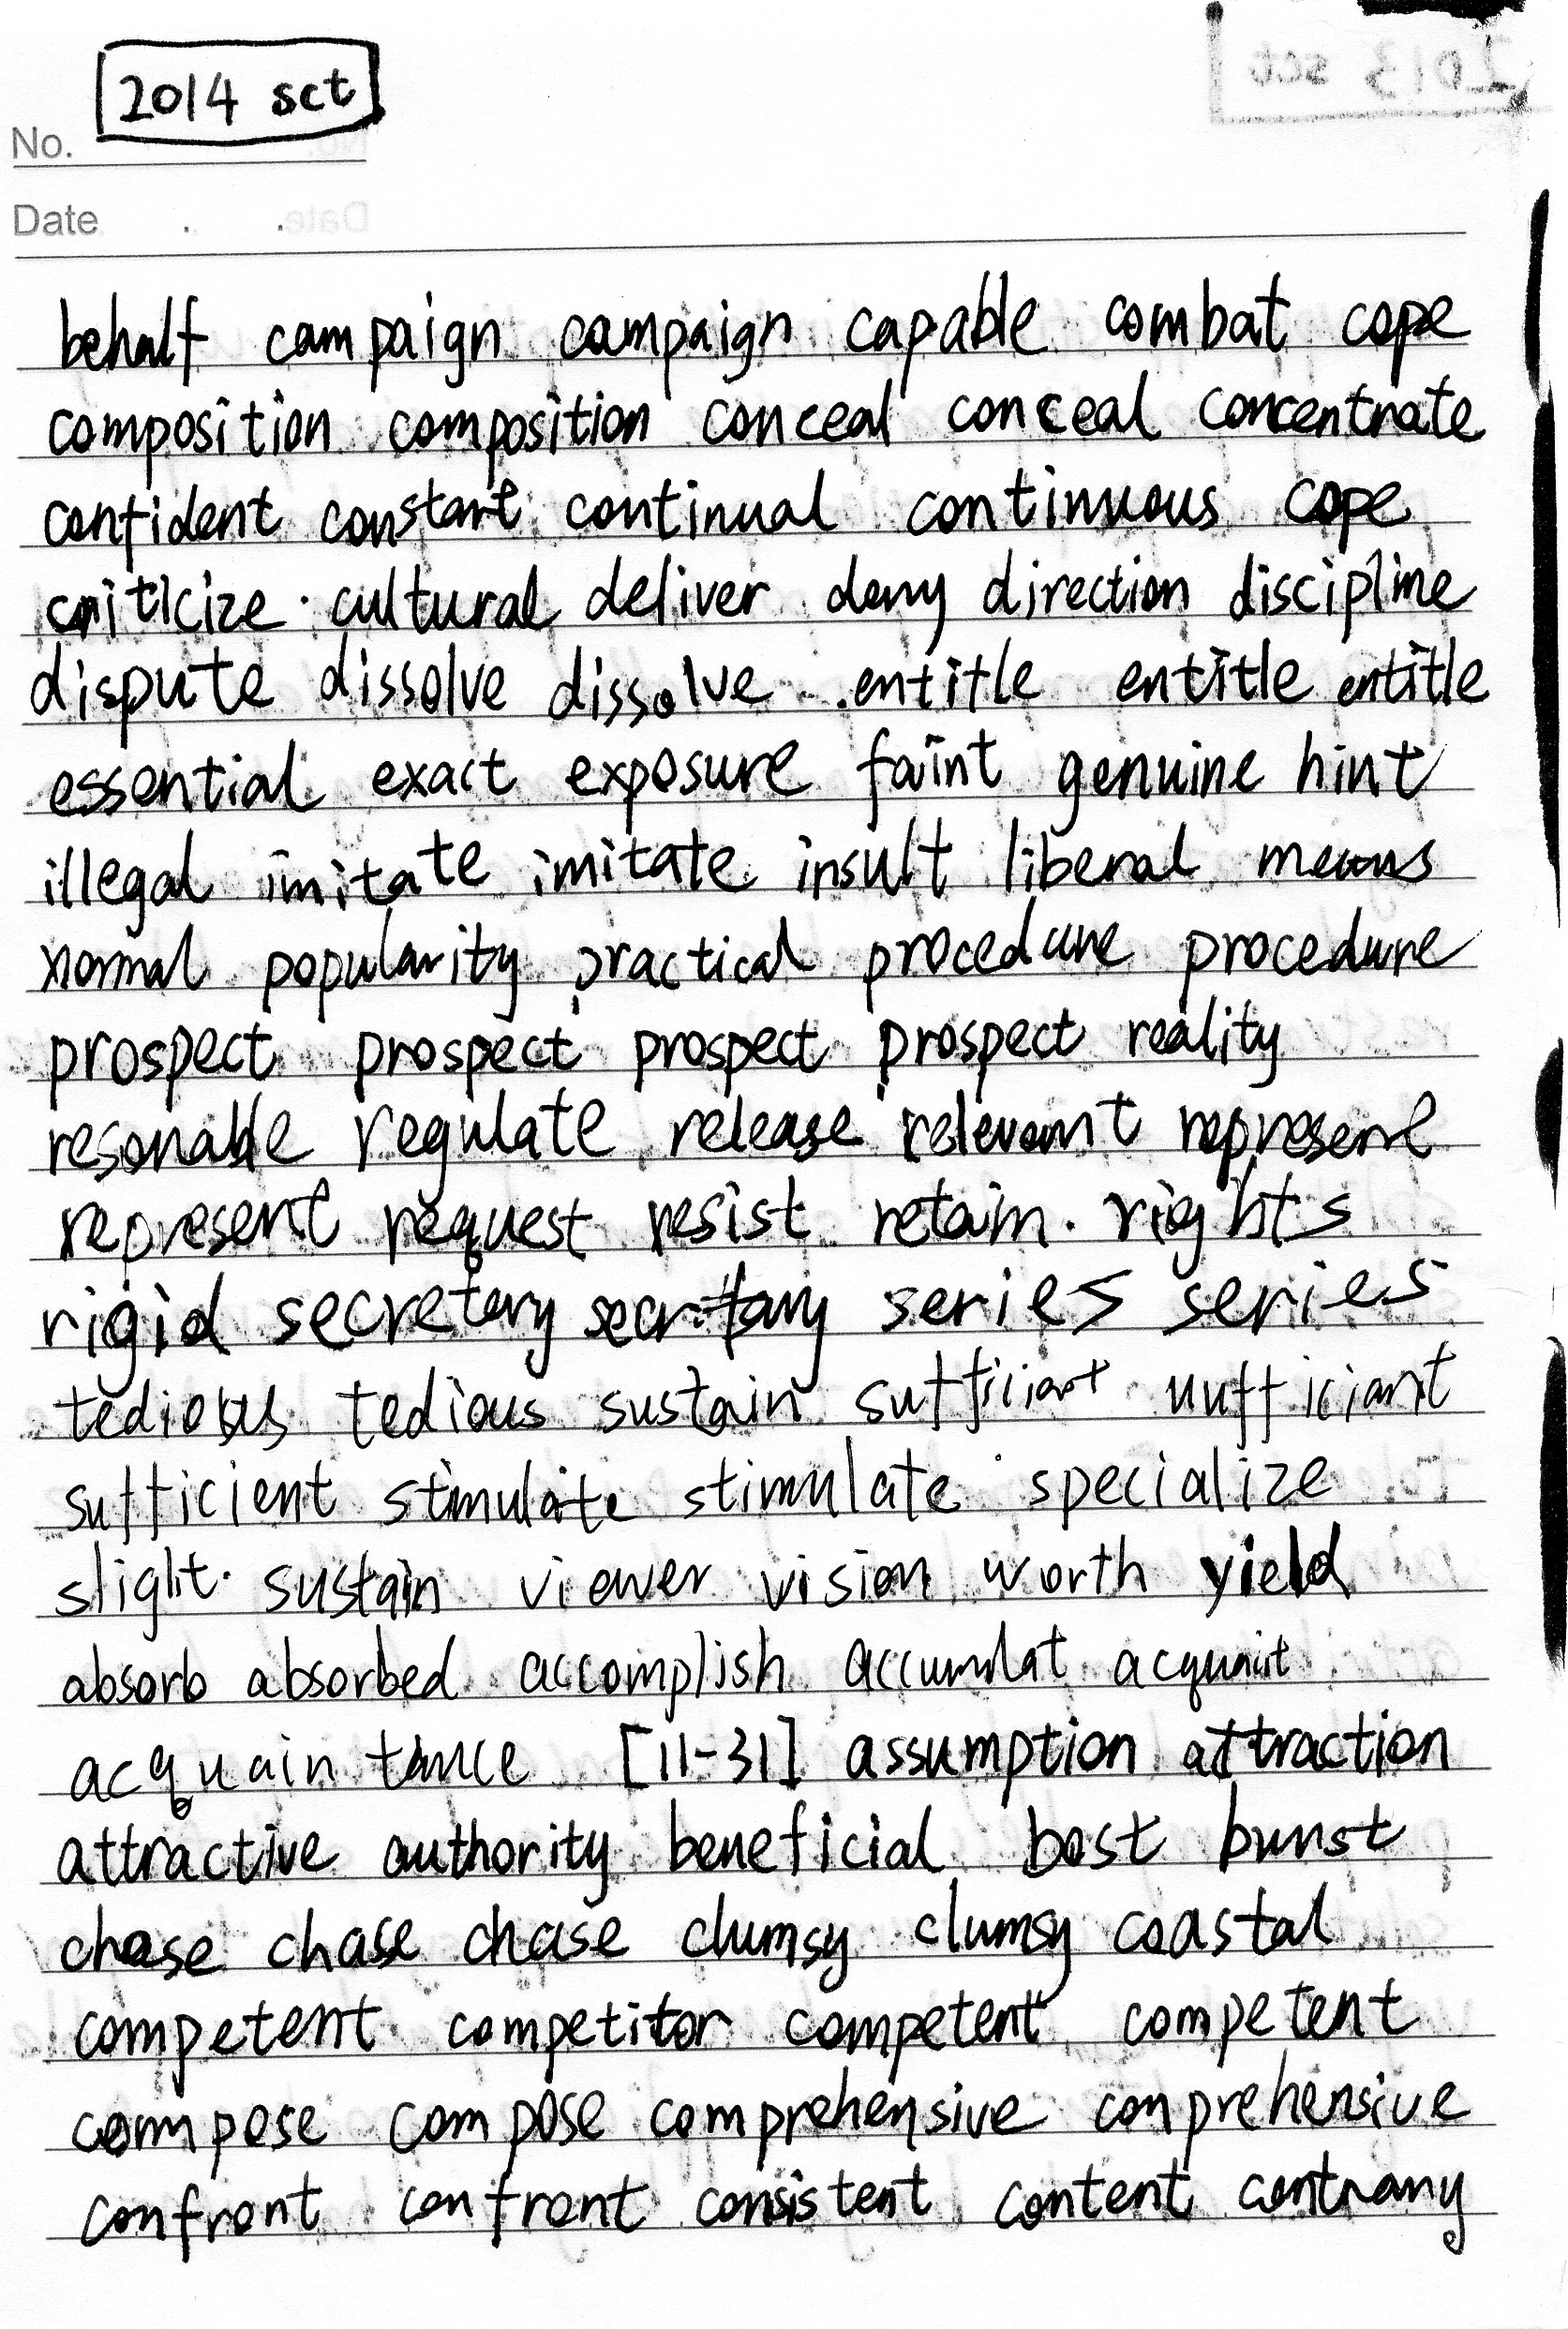 2014 sct
No.
Date . .
behalf campaign campaign capable combat cope
composition composition conceal conceal concentrate
confident constant continual continuous cope
criticize cultural deliver deny direction discipline
dispute dissolve dissolve entitle entitle entitle
essential exact exposure faint genuine hint
illegal imitate imitate insult liberal means
normal popularity practical procedure procedure
prospect prospect prospect prospect reality
resonable regulate release relevant represent
represent request resist retain. rights
rigid secretary secretary series series
tedious tedious sustain sufficiant nufficiant
sufficient stimulate stimulate specialize
slight. sustain viewer vision worth yield
absorb absorbed accomplish accumulat acquaint
acquaintance [11-31] assumption attraction
attractive authority beneficial bost burst
chase chase chase clumsy clumsy coastal
competent competitor competent competent
compose compose comprehensive conprehensive
confront confront consistent content contrary